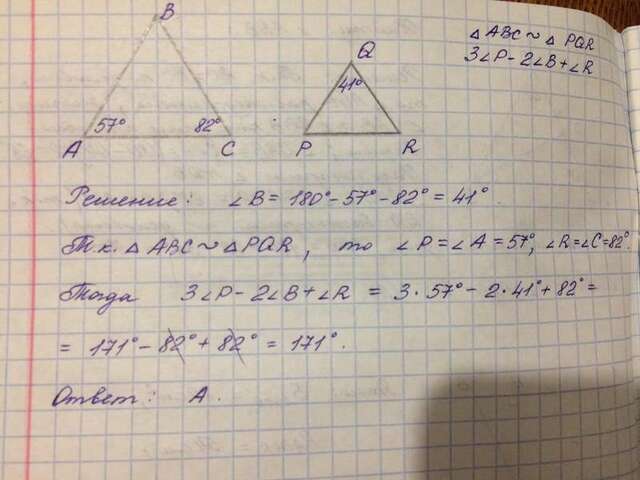 Δ ABC ~ Δ PQR
3∠P - 2∠B + ∠R
B
Q
57°
82°
41°
A
C
P
R
Решение: ∠B = 180° - 57° - 82° = 41°.
Т.к. Δ ABC ~ Δ PQR, то ∠P = ∠A = 57°, ∠R = ∠C = 82°.
Тогда 3∠P - 2∠B + ∠R = 3·57° - 2·41° + 82° =
= 171° - 82° + 82° = 171°.
Ответ: А.